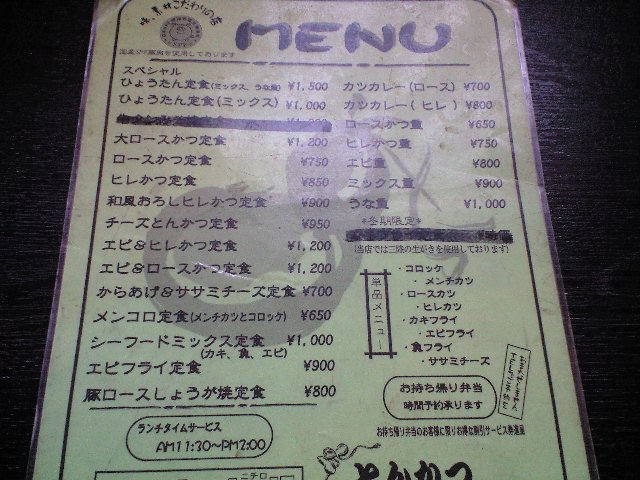 味、素材こだわりの店
MENU
豚肉を使用しております
スペシャル
ひょうたん定食(ミックス、うな重) ¥1,500
ひょうたん定食(ミックス) ¥1,000
大ロースかつ定食 ¥1,200
ロースかつ定食 ¥750
ヒレかつ定食 ¥850
和風おろしヒレかつ定食 ¥900
チーズとんかつ定食 ¥950
エビ&ヒレかつ定食 ¥1,200
エビ&ロースかつ定食 ¥1,200
からあげ&ササミチーズ定食 ¥700
メンコロ定食(メンチカツとコロッケ) ¥650
シーフードミックス定食 ¥1,000
(カキ、魚、エビ)
エビフライ定食 ¥900
豚ロースしょうが焼定食 ¥800
ランチタイムサービス
AM11:30〜PM2:00
カツカレー(ロース) ¥700
カツカレー(ヒレ) ¥800
ロースかつ重 ¥650
ヒレかつ重 ¥750
エビ重 ¥800
ミックス重 ¥900
うな重 ¥1,000
*冬期限定*
(当店では三陸の生がきを使用しております)
単品メニュー
・コロッケ
・メンチカツ
・ロースカツ
・ヒレカツ
・カキフライ
・エビフライ
・魚フライ
・ササミチーズ
お持ち帰り弁当
時間予約承ります
お持ち帰り弁当のお客様に限りお得な割引サービス券進呈
とんかつ